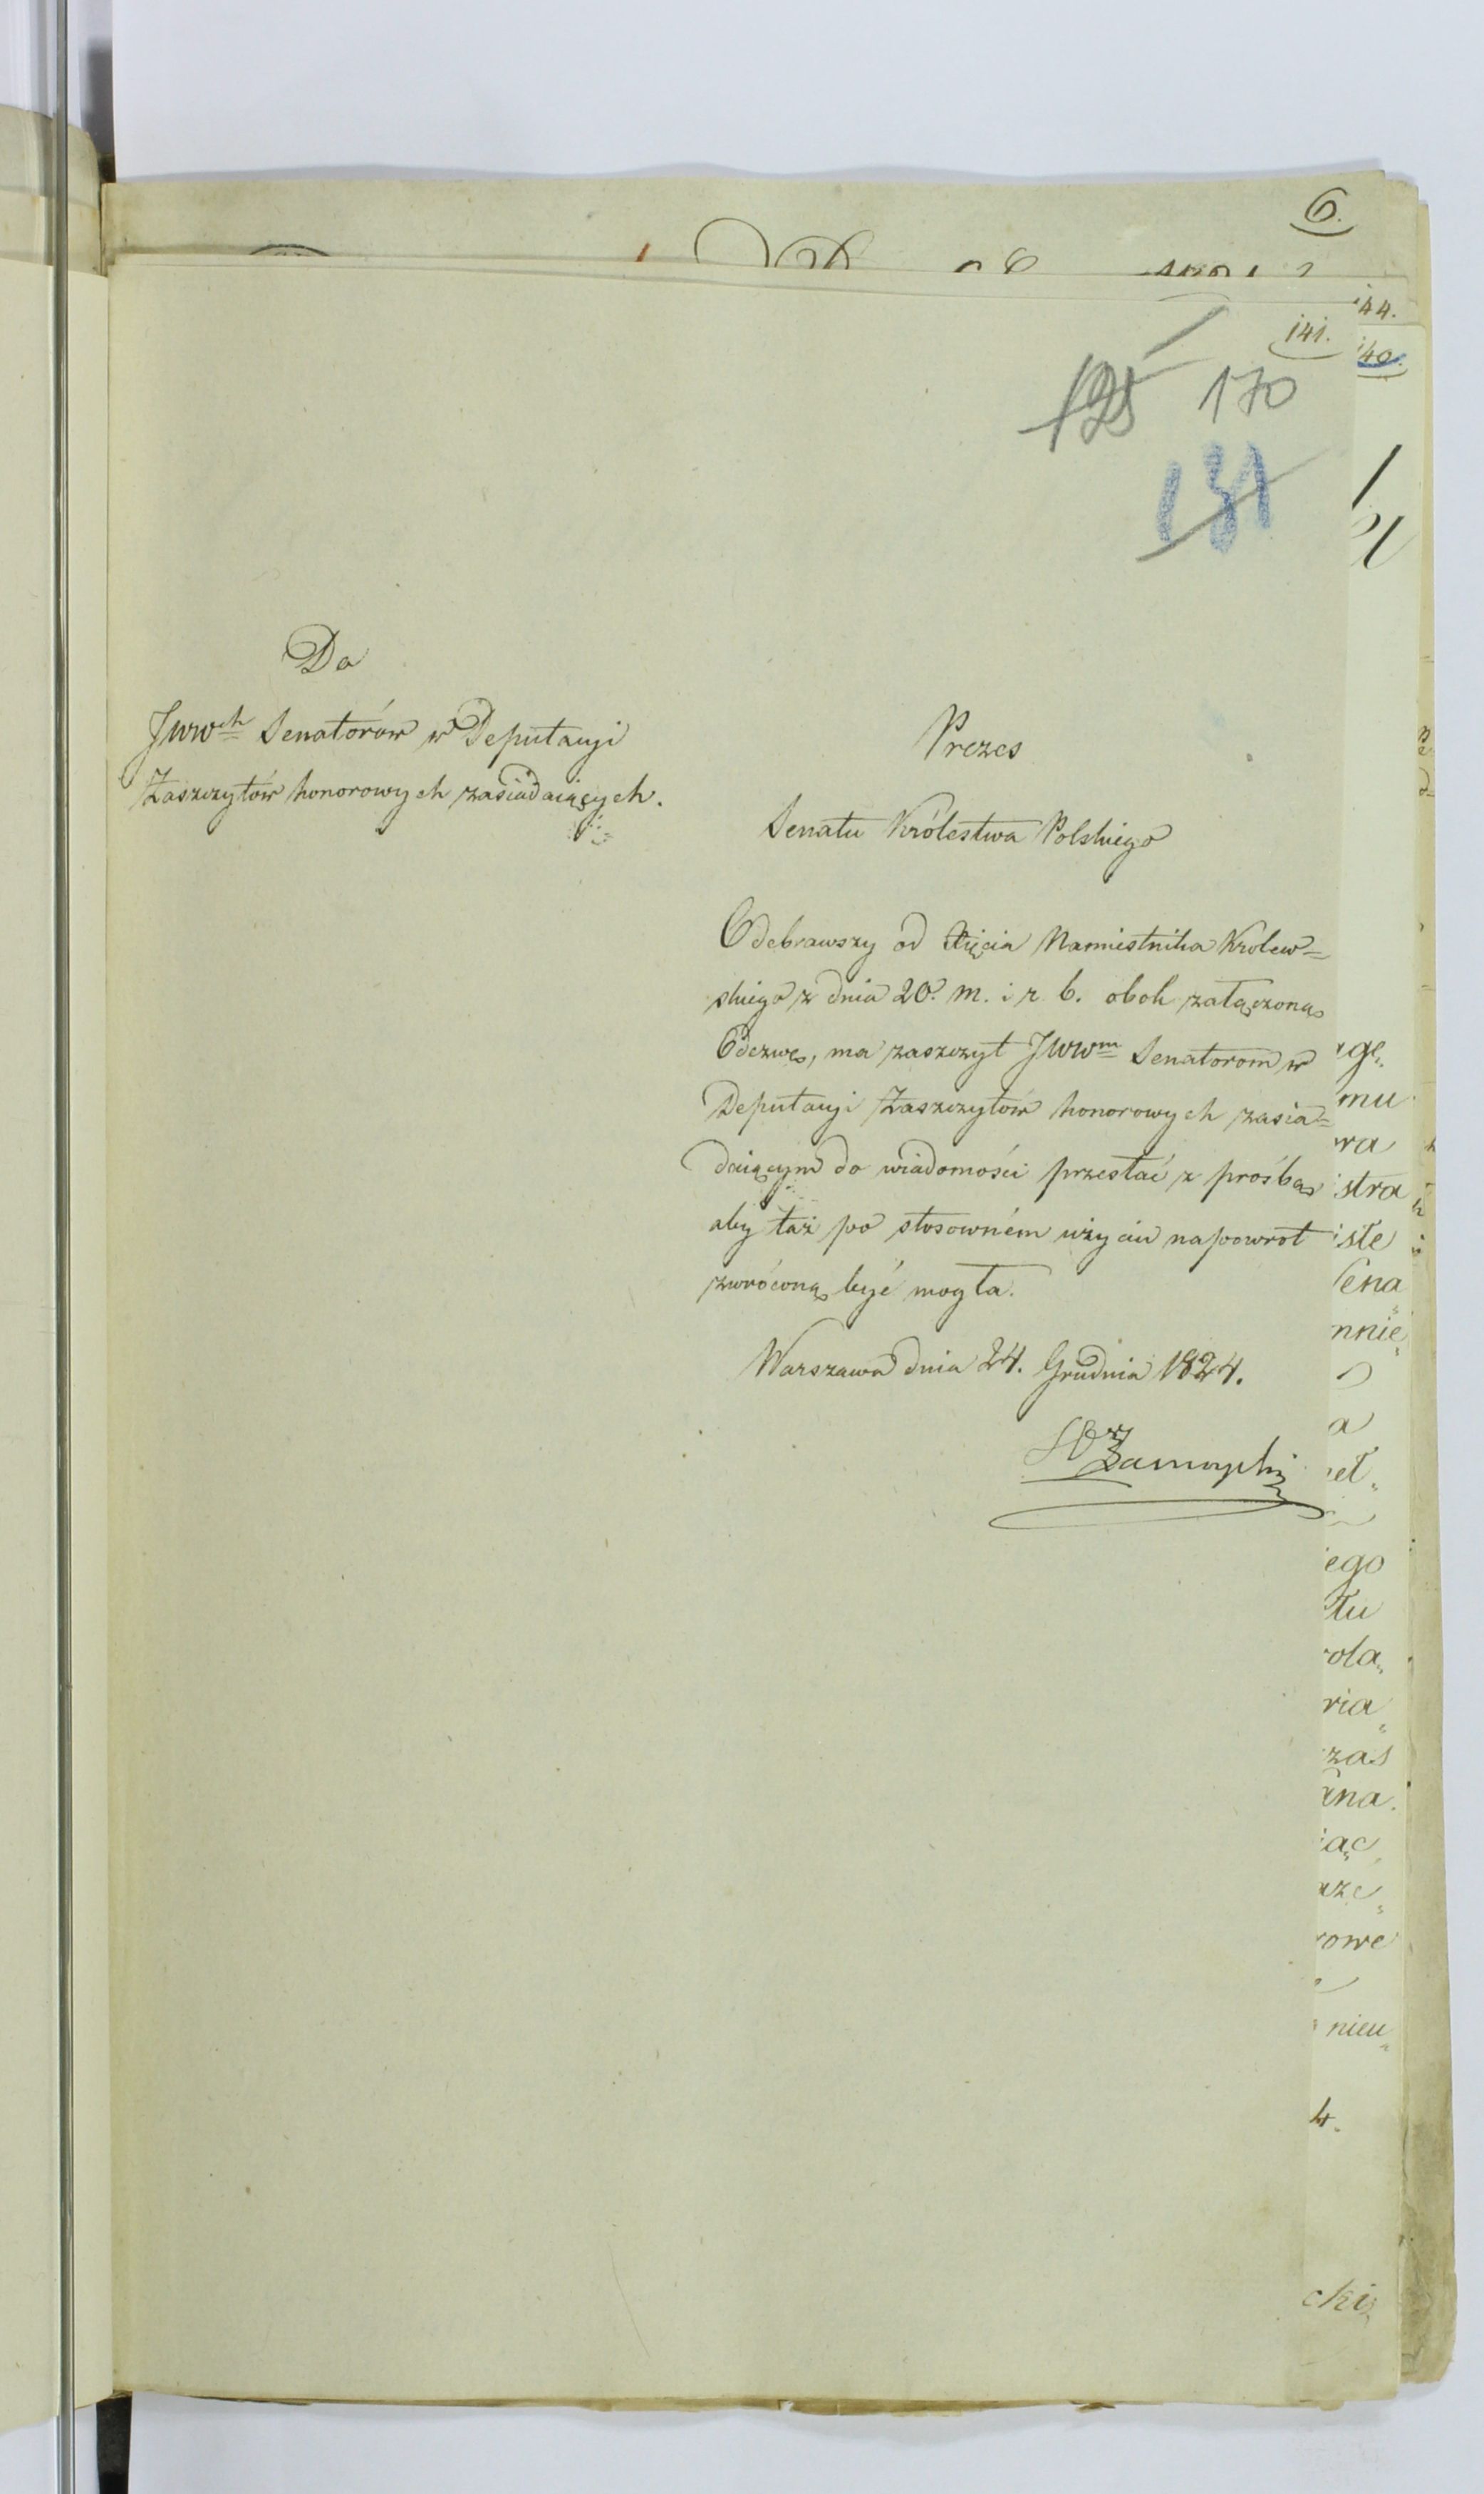 6.
144.
141.
140.
125 170
131
Do
JWWch Senatorów w Deputacyi
Zaszczytów honorowych zasiadaiących.
Prezes
Senatu Królestwa Polskiego
Odebrawszy od Xięcia Namiestnika Królew=
skiego z dnia 20. m. i r. b. obok załączoną
Odezwę, ma zaszczyt JWWm Senatorom w
Deputacyi Zaszczytów honorowych zasia=
daiącym do wiadomości przesłać z prośbą
aby taż po stosowném użyciu napowrot
zwróconą być mogła.
Warszawa dnia 24. Grudnia 1824.
Zamoyski
mu
stra
ego
tu
rola
ria
zas
iąc
rowe
nieu
4.
cki